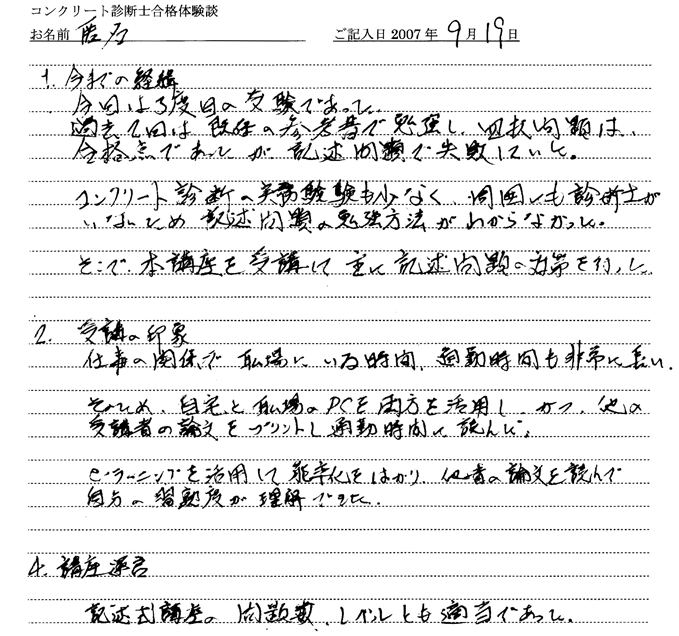 コンクリート診断士合格体験談
お名前 匿名 ご記入日 2007 年 9 月 19 日
1. 今までの経緯
今回は3度目の受験であった。
過去2回は既存の参考書で勉強し、四択問題は、
合格点であったが、記述問題で失敗していた。
コンクリート診断の実務経験も少なく、周囲にも診断士が
いないため記述問題の勉強方法がわからなかった。
そこで、本講座を受講して主に記述問題の対策を行った。
2. 受講の印象
仕事の関係で職場にいる時間、通勤時間も非常に長い。
そのため、自宅と職場のPCを両方を活用し、かつ、他の
受講者の論文をプリントし通勤時間に読んだ。
eラーニングを活用して能率化をはかり、他者の論文を読んで
自分の習熟度が理解できた。
4. 講座運営
記述式講座の問題数、レベルとも適当であった。